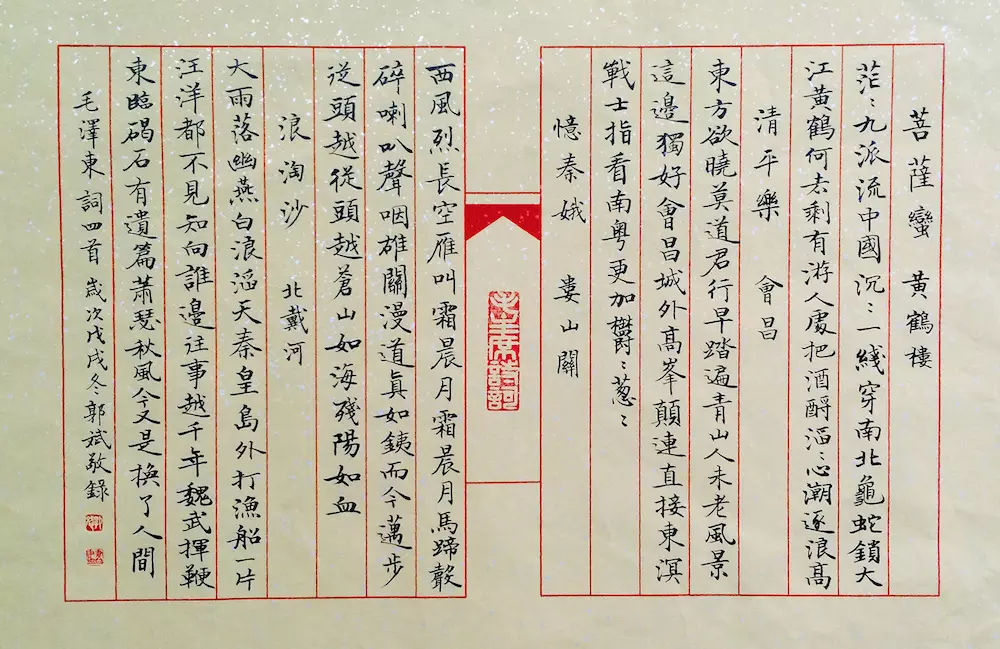 菩薩蠻 黃鶴樓
茫〻九派流中國沉〻一綫穿南北龜蛇鎖大
江黃鶴何去剩有游人處把酒酹滔〻心潮逐浪高
清平樂 會昌
東方欲曉莫道君行早踏遍青山人未老風景
這邊獨好會昌城外高峯顛連直接東溟
戰士指看南粵更加欝〻蔥〻
憶秦娥 婁山關
毛主席詩詞
西風烈長空雁叫霜晨月霜晨月馬蹄聲
碎喇叭聲咽雄關漫道真如鐵而今邁步
從頭越從頭越蒼山如海殘陽如血
浪淘沙 北戴河
大雨落幽燕白浪滔天秦皇島外打漁船一片
汪洋都不見知向誰邊往事越千年魏武揮鞭
東臨碣石有遺篇蕭瑟秋風今又是換了人間
毛澤東詞四首 歲次戊戌冬郭斌敬錄